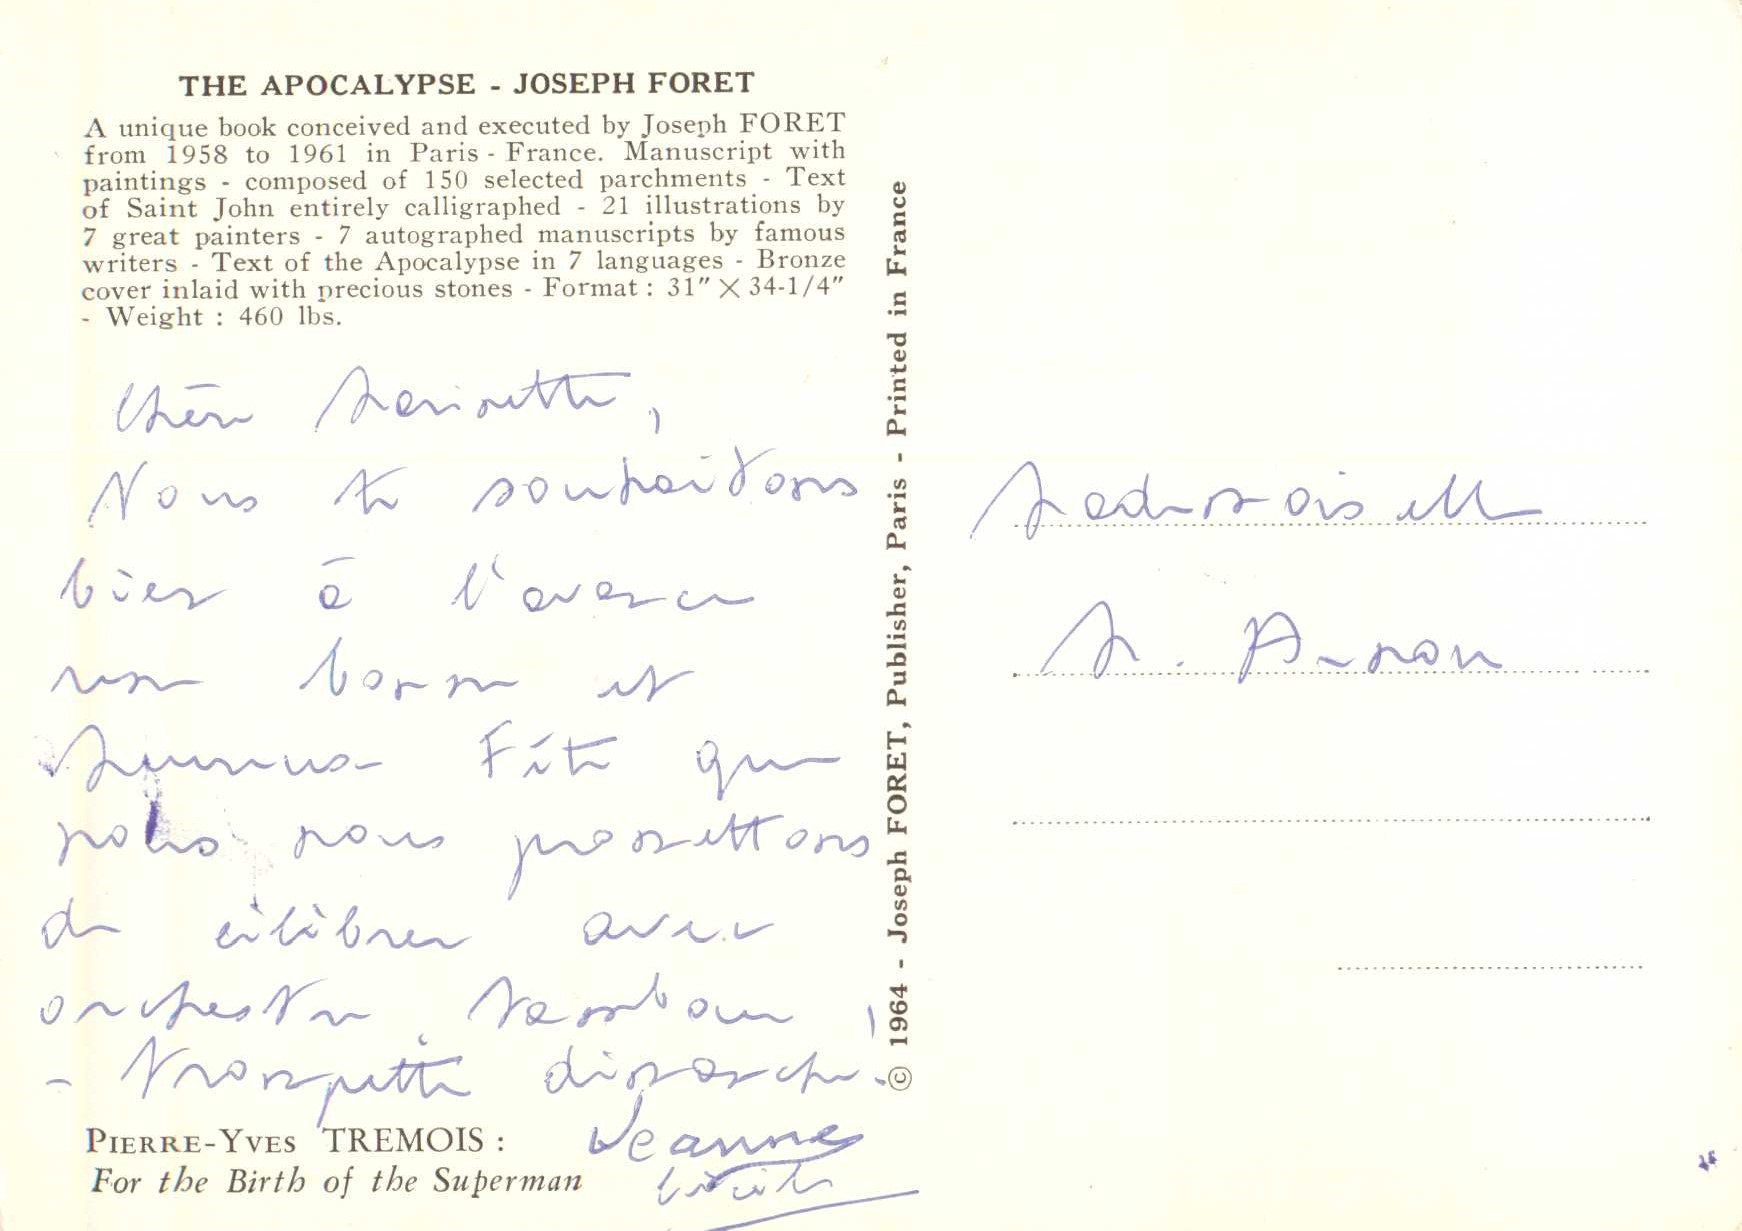 THE APOCALYPSE - JOSEPH FORET
A unique book conceived and executed by Joseph FORET
from 1958 to 1961 in Paris - France. Manuscript with
paintings - composed of 150 selected parchments - Text
of Saint John entirely calligraphed - 21 illustrations by
7 great painters - 7 autographed manuscripts by famous
writers - Text of the Apocalypse in 7 languages - Bronze
cover inlaid with precious stones - Format : 31" X 34-1/4"
- Weight : 460 lbs.
Chère Mariette,
Nous te souhaitons
bien à l'avance
une bonne et
heureuse Fête que
nous nous promettons
de célébrer avec
orchestre, tambour,
- trompette dimanche.
Jeanne
PIERRE-YVES TREMOIS :
For the Birth of the Superman
© 1964 - Joseph FORET, Publisher, Paris - Printed in France
Mademoiselle
M.